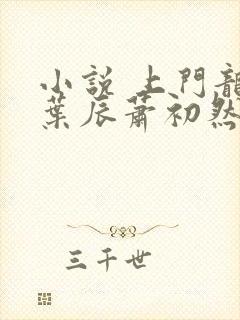 小説 上門龍
葉辰蕭初然
三千世